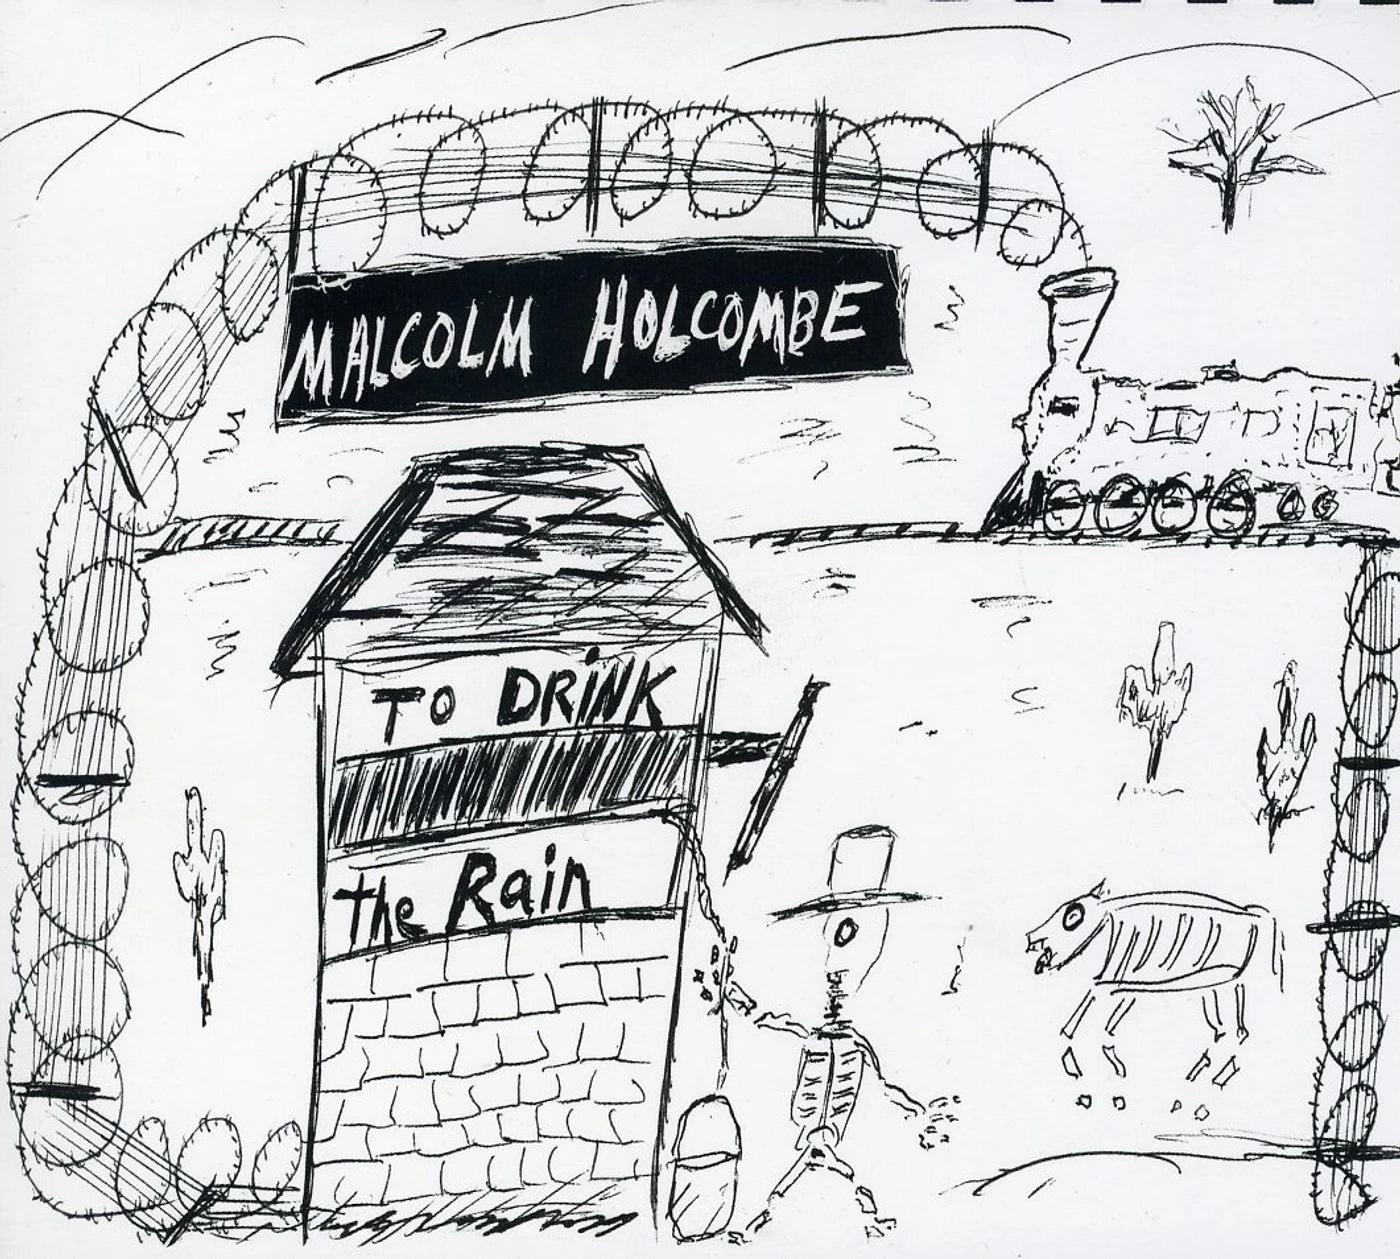 MALCOLM HOLCOMBE
To DRiNK
the Rain